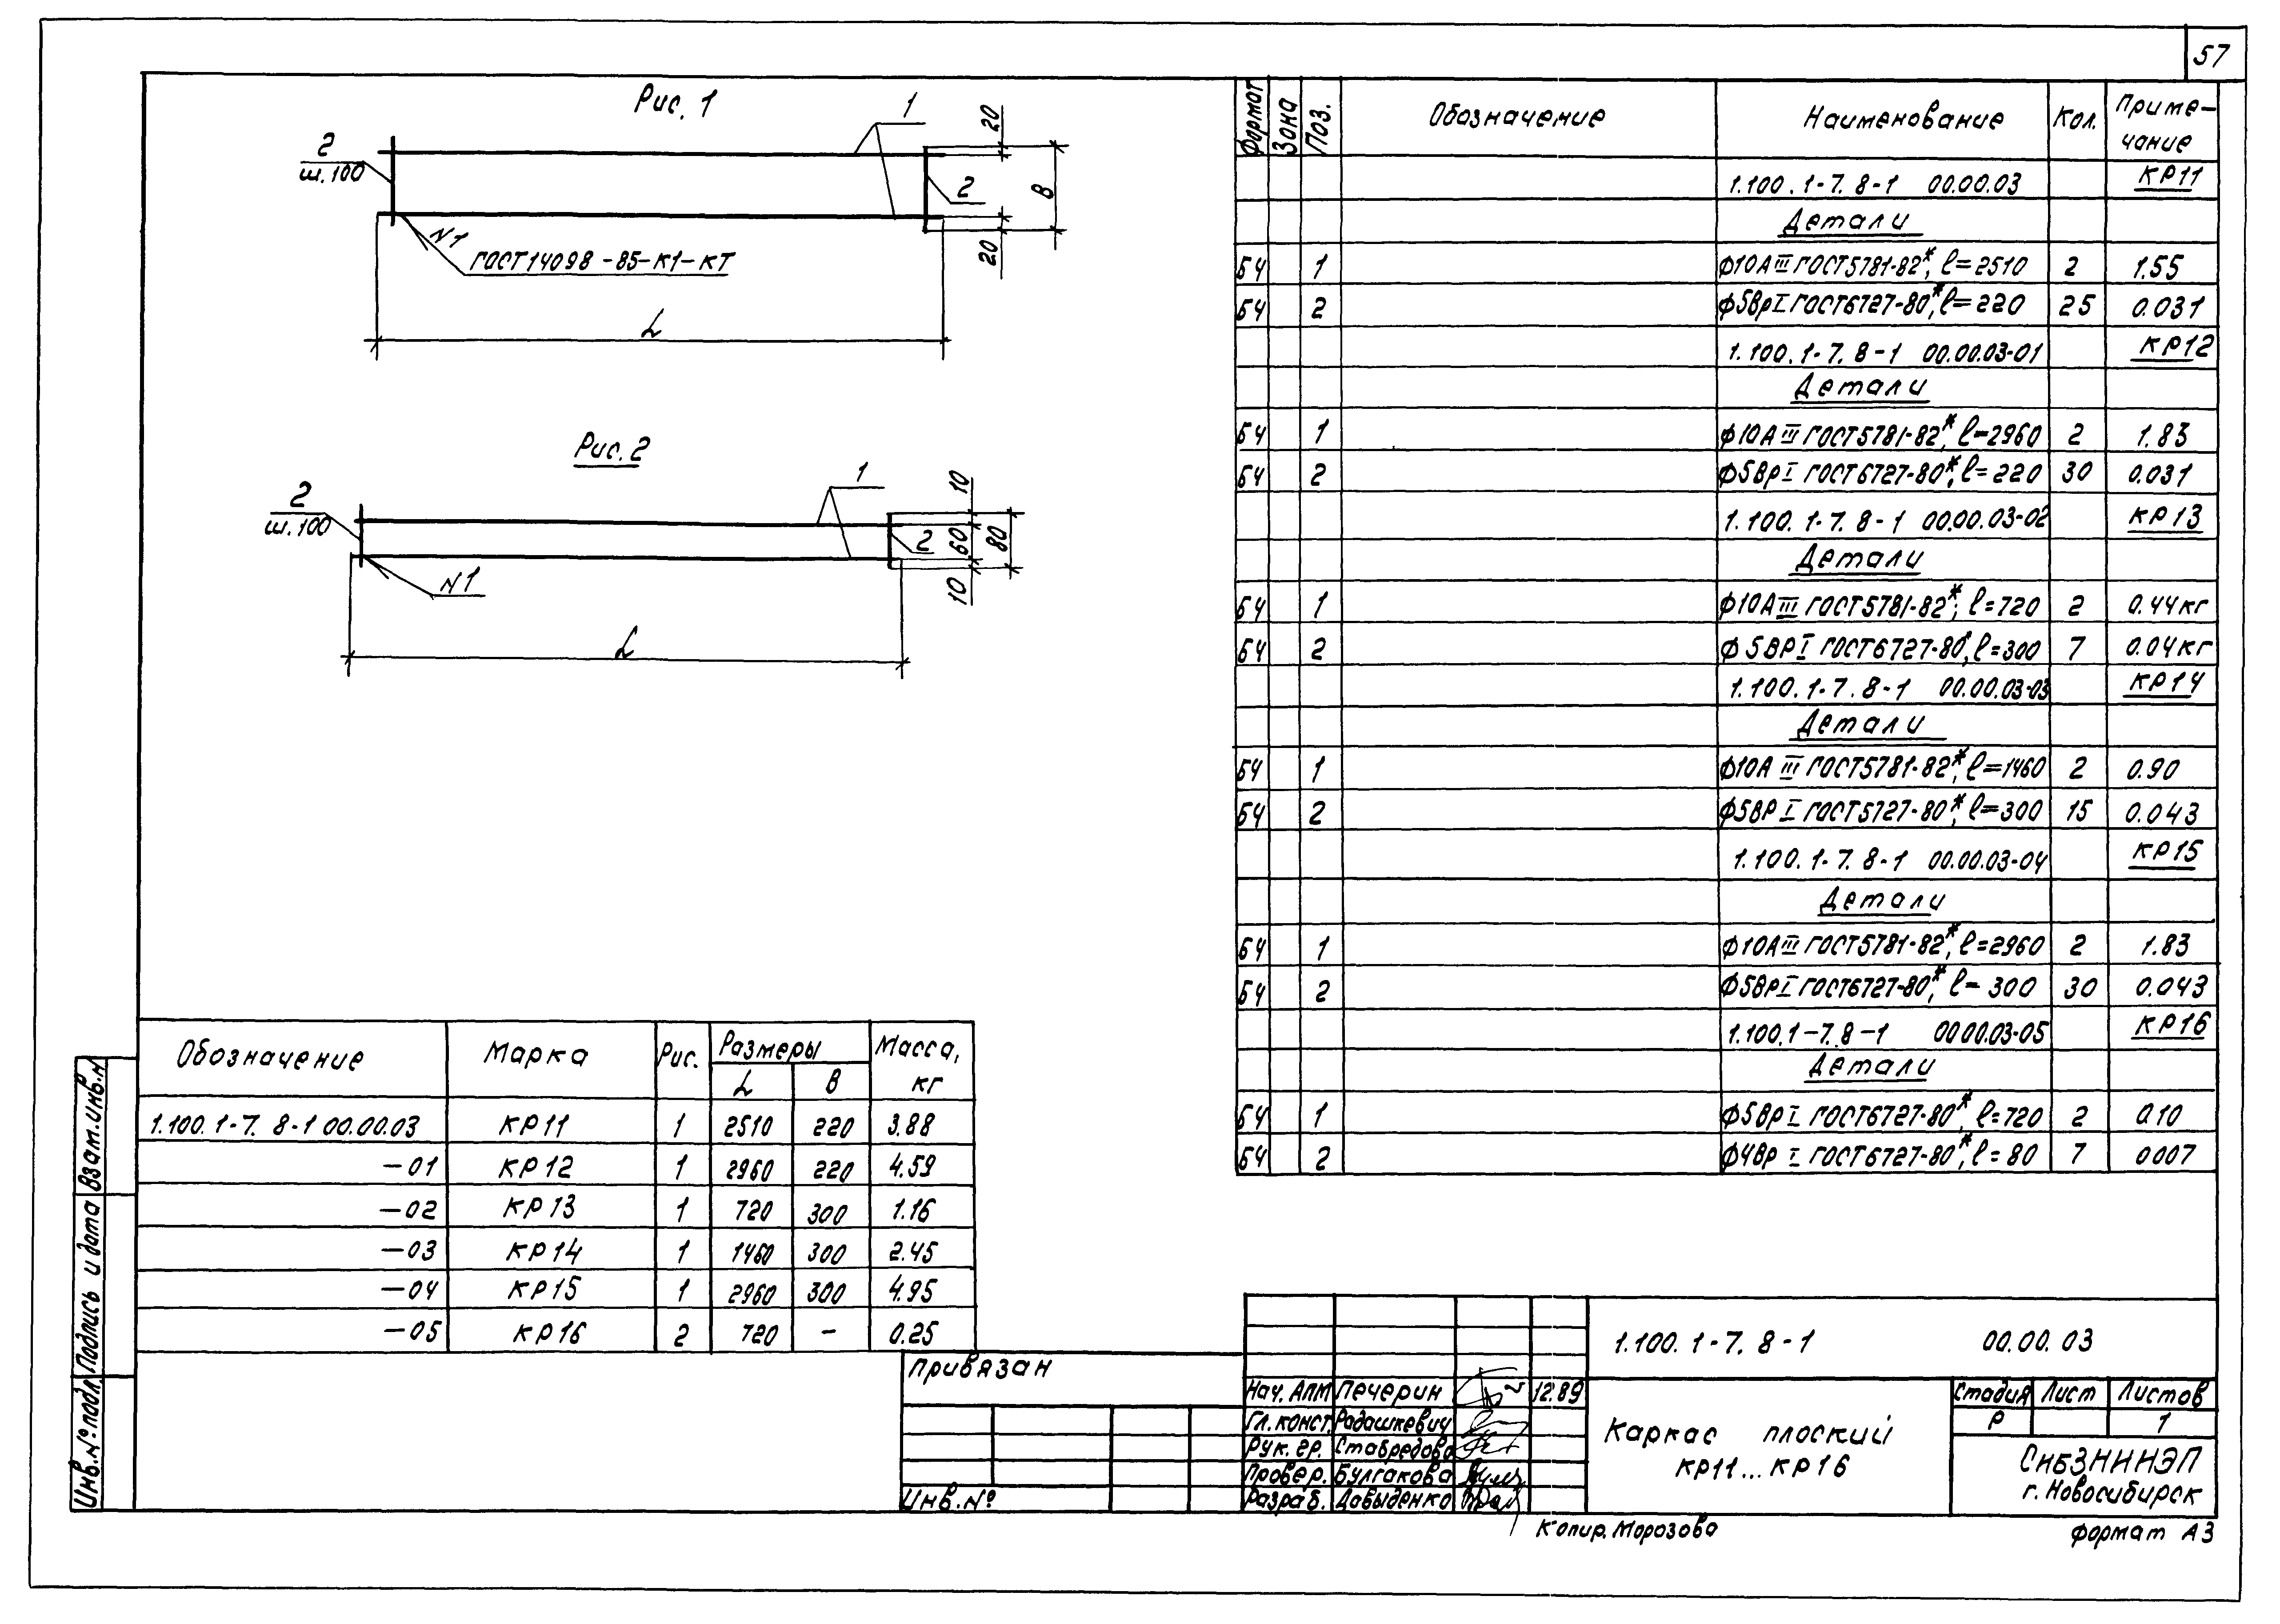 57
Рис. 1
1
20
2
ш.100
2
В
N1
ГОСТ14098-85-К1-КТ
20
L
Рис. 2
1
10
2
ш.100
2
60
80
N1
10
L
Формат Зона Поз. Обозначение Наименование Кол. Приме-
чание
1.100.1-7.8-1 00.00.03 КР11
Детали
БЧ 1 Ф10АIII ГОСТ5781-82*, ℓ=2510 2 1.55
БЧ 2 Ф5ВрI ГОСТ6727-80*, ℓ=220 25 0.031
1.100.1-7.8-1 00.00.03-01 КР12
Детали
БЧ 1 Ф10АIII ГОСТ5781-82*, ℓ=2960 2 1.83
БЧ 2 Ф5ВрI ГОСТ6727-80*, ℓ=220 30 0.031
1.100.1-7.8-1 00.00.03-02 КР13
Детали
БЧ 1 Ф10АIII ГОСТ5781-82*, ℓ=720 2 0.44кг
БЧ 2 Ф5ВРI ГОСТ6727-80*, ℓ=300 7 0.04кг
1.100.1-7.8-1 00.00.03-03 КР14
Детали
БЧ 1 Ф10АIII ГОСТ5781-82*, ℓ=1460 2 0.90
БЧ 2 Ф5ВРI ГОСТ5727-80*, ℓ=300 15 0.043
1.100.1-7.8-1 00.00.03-04 КР15
Детали
БЧ 1 Ф10АIII ГОСТ5781-82*, ℓ=2960 2 1.83
БЧ 2 Ф5ВрI ГОСТ6727-80*, ℓ=300 30 0.043
1.100.1-7.8-1 00.00.03-05 КР16
Детали
БЧ 1 Ф5ВрI ГОСТ6727-80*, ℓ=720 2 0.10
БЧ 2 Ф4Вр I ГОСТ6727-80*, ℓ=80 7 0007
Обозначение Марка Рис. Размеры Масса,
L В кг
1.100.1-7.8-1 00.00.03 КР11 1 2510 220 3.88
-01 КР12 1 2960 220 4.59
-02 КР13 1 720 300 1.16
-03 КР14 1 1460 300 2.45
-04 КР15 1 2960 300 4.95
-05 КР16 2 720 - 0.25
Взам.инв.N
Подпись и дата
Инв.№подл.
Привязан
Инв.№
Нач. АПМ Печерин 12.89
Гл.конст. Радашкевич
Рук. гр. Стабредова
Провер. Булгакова
Разраб. Давыденко
1.100.1-7.8-1 00.00.03
Каркас плоский
КР11...КР16
Стадия Лист Листов
Р 1
СибЗНИИЭП
г.Новосибирск
Копир. Морозова
формат А3